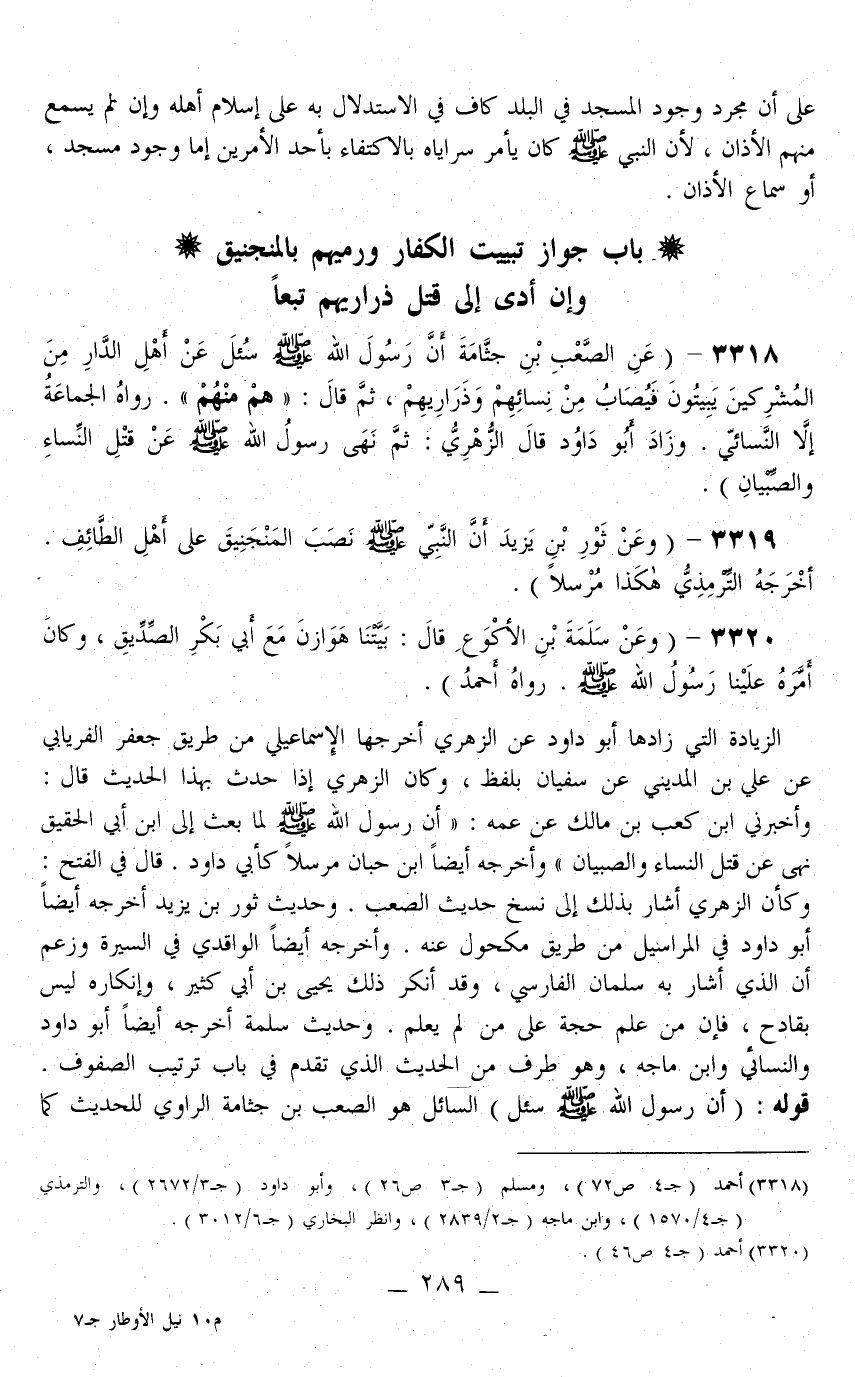 على أن مجرد وجود المسجد في البلد كاف في الاستدلال به على إسلام أهله وإن لم يسمع
منهم الأذان ، لأن النبي ﷺ كان يأمر سراياه بالاكتفاء بأحد الأمرين إما وجود مسجد ،
أو سماع الأذان .
✸ باب جواز تبييت الكفار ورميهم بالمنجنيق ✸
وإن أدى إلى قتل ذراريهم تبعاً
٣٣١٨ – ( عَنِ الصَّعْبِ بْنِ جثَّامَةَ أَنَّ رَسُولَ الله ﷺ سُئلَ عَنْ أَهْلِ الدَّارِ مِنَ
المُشْرِكينَ يَبِيتُونَ فَيُصَابُ مِنْ نِسائِهِمْ وَذَرَارِيهِمْ ، ثمَّ قالَ : « همْ منْهُمْ » . رواهُ الجماعَةُ
إلَّا النَّسائيّ . وزَادَ أَبُو دَاوُد قالَ الزُّهْرِيُّ : ثمَّ نَهَى رسولُ الله ﷺ عَنْ قتْلِ النِّساءِ
والصِّبْيانِ ) .
٣٣١٩ – ( وعَنْ ثَوْرِ بْنِ يَزيدَ أَنَّ النَّبِيّ ﷺ نَصَبَ المَنْجَنِيقَ على أَهْلِ الطَّائِفِ .
أخْرَجَهُ التِّرْمِذِيُّ هٰكَذا مُرْسلاً ) .
٣٣٢٠ – ( وعَنْ سَلَمَةَ بْنِ الأكْوَعِ قالَ : بَيَّتْنَا هَوَازنَ مَعَ أَبي بَكْرِ الصِّدِّيقِ ، وكانَ
أَمَّرَهُ علَيْنا رَسُولُ الله ﷺ . رواهُ أَحمدُ ) .
الزيادة التي زادها أبو داود عن الزهري أخرجها الإِسماعيلي من طريق جعفر الفريابي
عن علي بن المديني عن سفيان بلفظ ، وكان الزهري إذا حدث بهذا الحديث قال :
وأخبرني ابن كعب بن مالك عن عمه : « أن رسول الله ﷺ لما بعث إلى ابن أبي الحقيق
نهى عن قتل النساء والصبيان » وأخرجه أيضاً ابن حبان مرسلاً كأبي داود . قال في الفتح :
وكأن الزهري أشار بذلك إلى نسخ حديث الصعب . وحديث ثور بن يزيد أخرجه أيضاً
أبو داود في المراسيل من طريق مكحول عنه . وأخرجه أيضاً الواقدي في السيرة وزعم
أن الذي أشار به سلمان الفارسي ، وقد أنكر ذلك يحيى بن أبي كثير ، وإنكاره ليس
بقادح ، فإن من علم حجة على من لم يعلم . وحديث سلمة أخرجه أيضاً أبو داود
والنسائي وابن ماجه ، وهو طرف من الحديث الذي تقدم في باب ترتيب الصفوف .
قوله : ( أن رسول الله ﷺ سئل ) السائل هو الصعب بن جثامة الراوي للحديث كما
(٣٣١٨) أحمد ( جـ٤ ص٧٢ ) ، ومسلم ( جـ٣ ص٢٦ ) ، وأبو داود ( جـ٢٦٧٢/٣ ) ، والترمذي
( جـ١٥٧٠/٤ ) ، وابن ماجه ( جـ٢٨٣٩/٢ ) ، وانظر البخاري ( جـ٣٠١٢/٦ ) .
(٣٣٢٠) أحمد ( جـ٤ ص٤٦ ) .
– ٢٨٩ –
م١٠ نيل الأوطار جـ٧